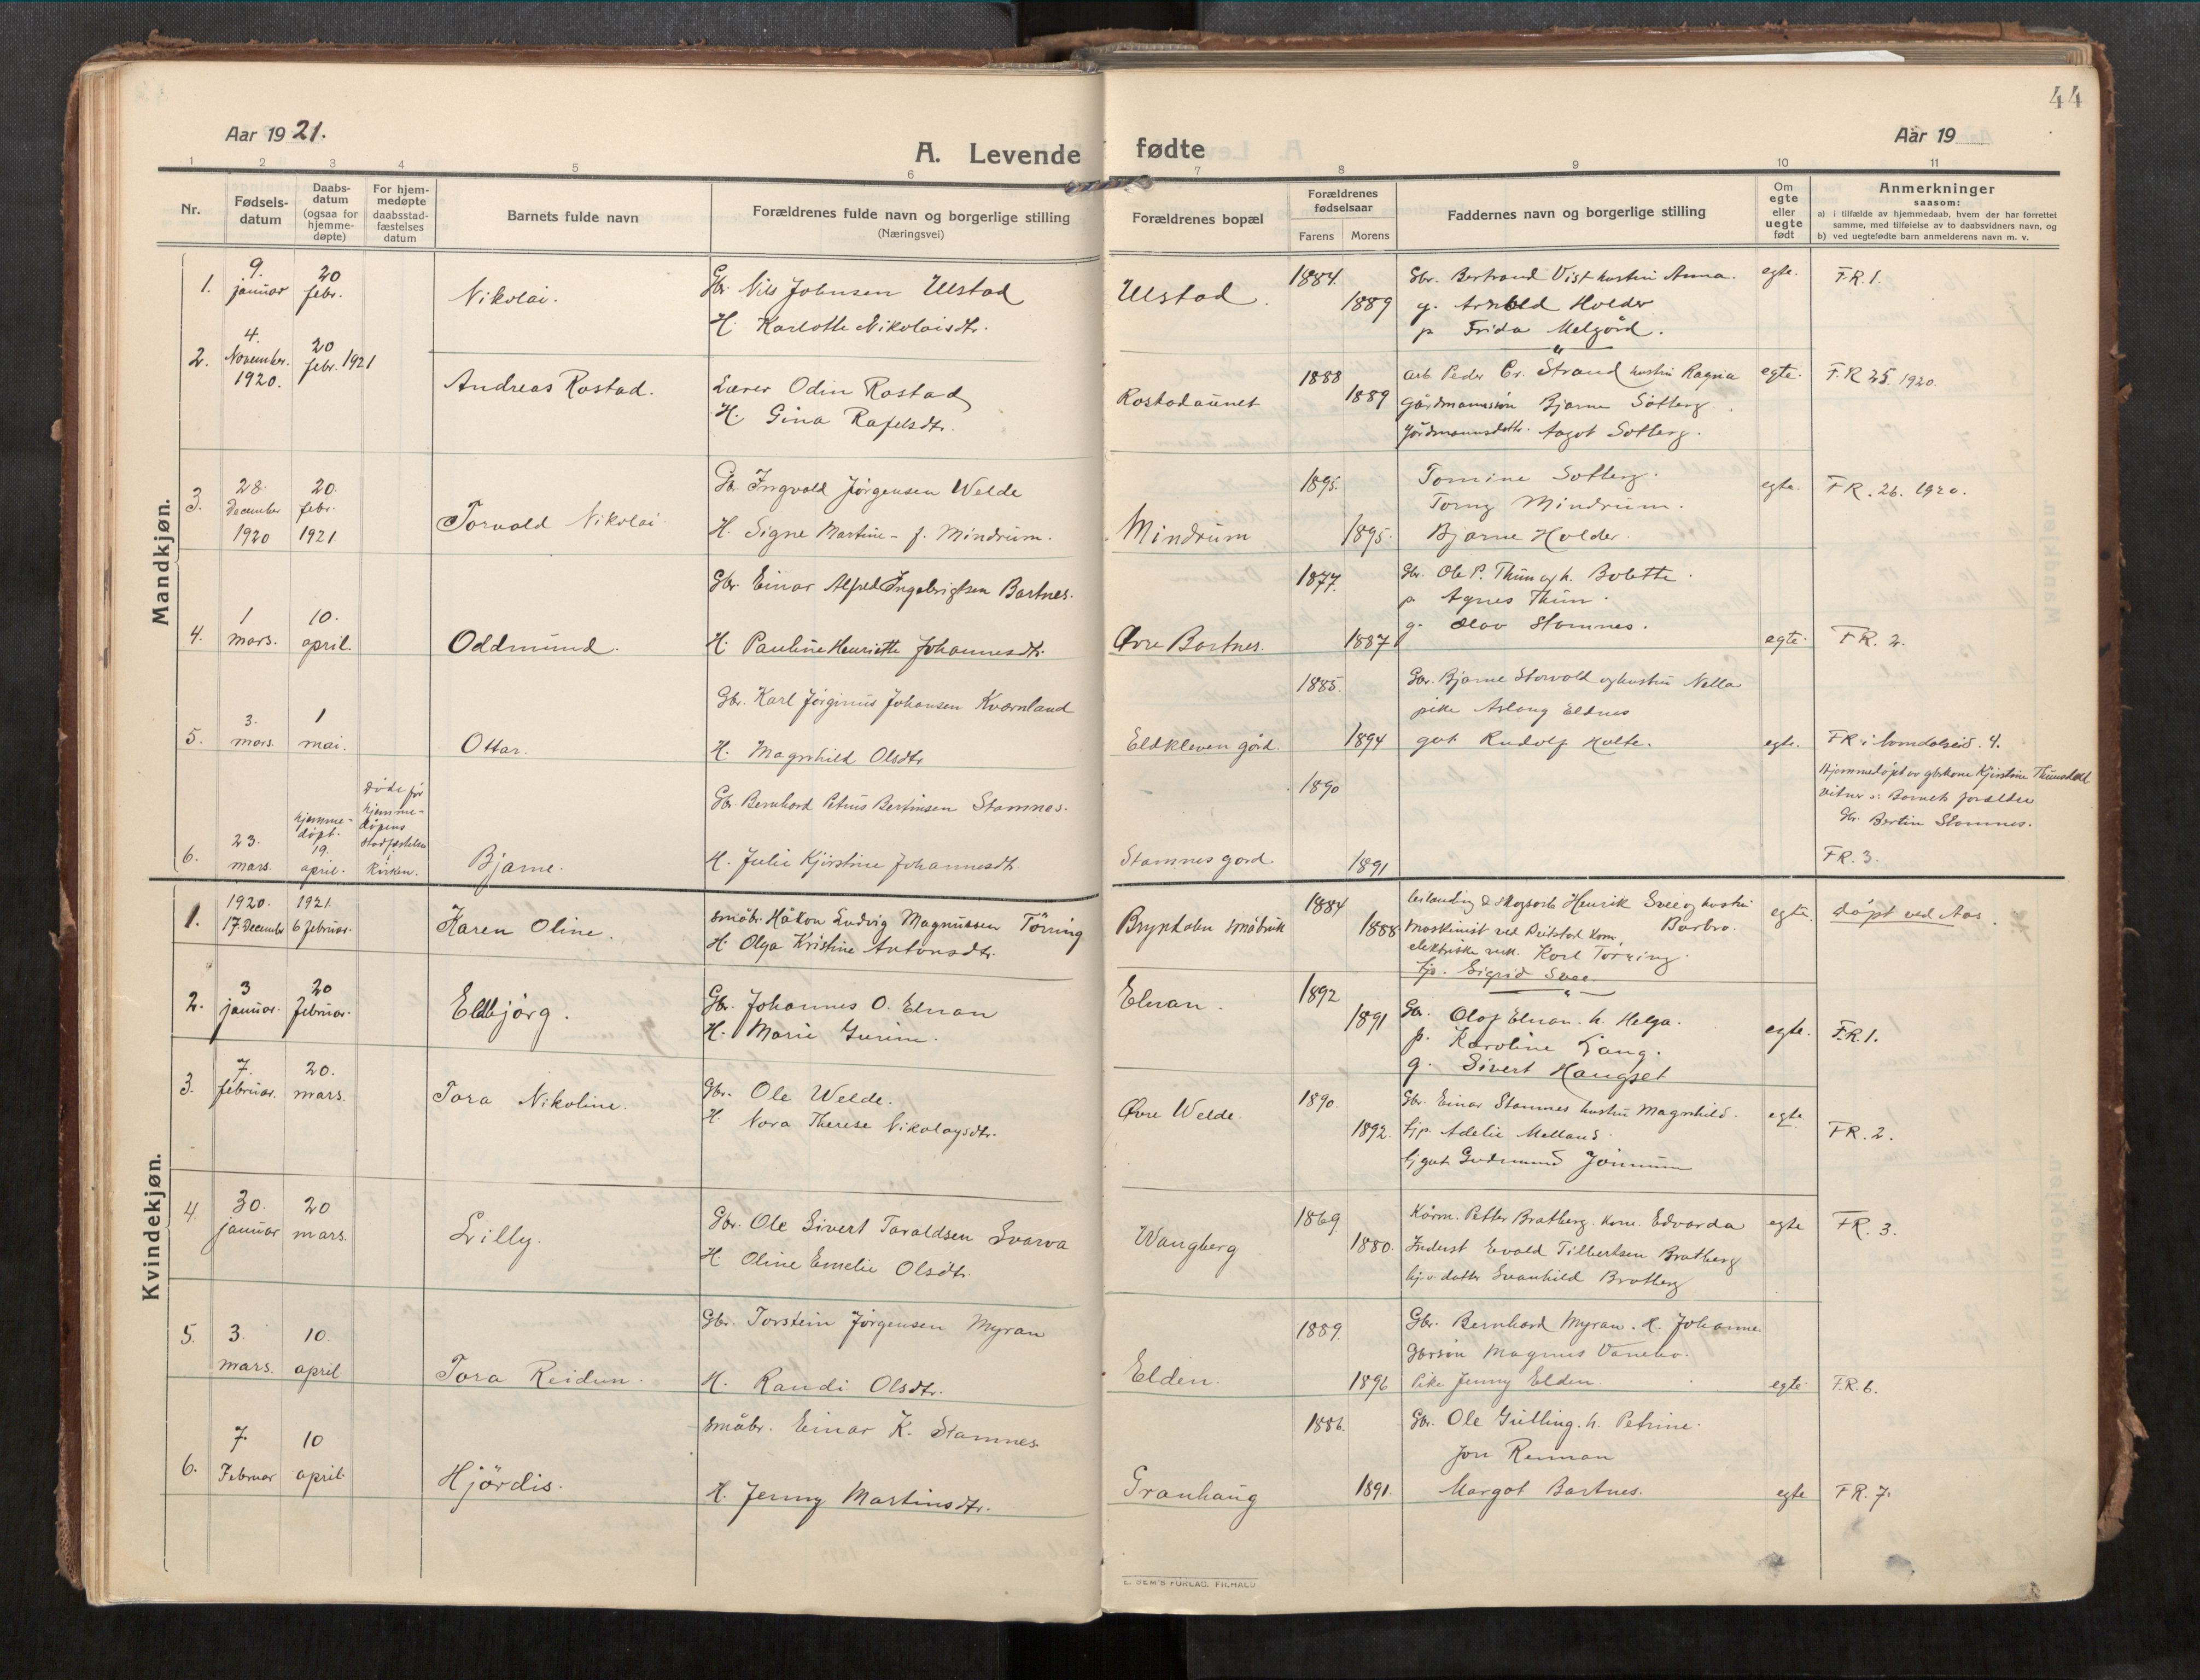 44
Aar 1921.
Aar 19
A. Levende fødte
1 2 3 4 5 6 7 8 9 10 11
Nr.
Fødsels-
datum
Daabs-
datum
(ogsaa for
hjemme-
døpte)
For hjem-
medøpte
daabsstad-
fæstelses
datum
Barnets fulde navn
Forældrenes fulde navn og borgerlige stilling
(Næringsvei)
Forældrenes bopæl
Forældrenes
fødselsaar
Farens Morens
Faddernes navn og borgerlige stilling
Om
egte
eller
uegte
født
Anmerkninger
saasom:
a) i tilfælde av hjemmedaab, hvem der har forrettet
samme, med tilføielse av to daabsvidners navn, og
b) ved uegtefødte barn anmelderens navn m. v.
Mandkjøn.
1. 9. januar 20 febr. Nikolai.
Gbr. Nils Johnsen Ulstad
H. Karlotte Nikolaisdtr.
Ulstad. 1884. 1889
Gbr. Bertrand Vist hustru Anna.
g. Arnold Holder
p Frida Melgård.
egte. F.R. 1.
2. 4. November. 1920. 20 febr. 1921 Andreas Rostad.
Lærer Odin Rostad
H. Gina Rafelsdtr.
Rostadaunet 1888 1889
arb. Peder Cr. Strand hustru Ragna
Gårdmannssøn Bjarne Sotberg.
Gårdmannsdattr. Aagot Sotberg.
egte. F.R 25. 1920.
3. 28. December 1920 20. febr. 1921 Torvald Nikolai
Gb. Ingvald Jørgensen Welde
H. Signe Martine - f. Mindrum.
Mindrum 1895. 1895.
Tomine Sotberg.
Torny Mindrum.
Bjarne Holder.
egte. F.R. 26. 1920.
4. 1 mars. 10. april. Oddmund.
Gbr. Einar Alfred Ingebrigtsen Bartnes.
H. Pauline Henriette Johannesdtr.
Øvre Bartnes. 1877. 1887
Gbr. Ole P. Thun og h. Bolette.
p. Agnes Thun.
g. Olav Stamnes.
egte. F.R. 2.
5. 3. mars. 1 mai. Ottar.
Gbr. Karl Jørginus Johansen Kvarnland
H. Magnhild Olsdtr
Eldkleven gård. 1885. 1894
Gbr. Bjarne Storvold og hustru Nella
pike Aslaug Eldnes
gut Rudolf Holte.
egte. FR i Namdalseid. 4.
6. 23. mars. hjemme-
døpt.
19.
april.
Døde før
hjemme-
døpens
stadfæstelse
i
Kirken.
Bjarne.
Gb. Bernhard Petrus Bertinsen Stamnes.
H. Julie Kjirstine Johannesdtr
Stamnes gård. 1890 1891
Hjemmedøpt av gbrkone Kjirstine
vitner: Barnets forældre
Gbr. Bertin Stamnes.
FR. 3.
Kvindekjøn.
1. 1920. 17. December 1921. 6 februar. Karen Oline.
småbr. Håkon Ludvig Magnussen Tørring
H. Olga Kristine Antonsdtr.
Bryndalen småbruk 1884 1888
Henrik Svee og hustru
Barbro.
Maskinist ved Beitstad kom.
elektriske verk. Karl Tørring.
tjp. Sigrid Svee
egte. døpt ved Aas.
2. 3 januar. 20 februar. Eldbjørg.
Gbr. Johannes O. Elnan
H. Marie Gurine.
Elnan. 1892 1891
Gbr. Olaf Elnan. h. Helga.
p. Karoline Lang.
g. Sivert Haugset
egte. F.R. 1.
3. 7. februar. 20. mars. Tora Nikoline.
Gbr. Ole Welde.
H. Nora Therese Nikolaysdtr.
Øvre Welde. 1890. 1892.
Gbr. Einar Stamnes hustru Magnhild.
tjp. Adelie Melland.
tj gut Gudmund
egte FR. 2.
4. 30. januar 20 mars. Lilly.
Gbr. Ole Sivert Taraldsen Svarva
H. Oline Emelie Olsdtr.
Wangberg 1869. 1880.
Kårm. Petter Bratberg. kone. Edvarda
Inderst Evald Tilbertsen Bratberg
datter Svanhild Bratberg
egte FR. 3.
5. 3. mars. 10. april Tora Reidun.
Gbr. Torstein Jørgensen Myran
H. Randi Olsdtr.
Elden. 1889. 1896
Gbr. Bernhard Myran. H. Johanne
Gbrsøn Magnus Vanebo.
Pike Jenny Elden.
egte. F.R. 6.
6. 7. Februar 10 april. Hjördis.
småbr. Einar K. Stamnes
H. Jenny Martinsdtr.
Granhaug 1886. 1891.
Gbr. Ole Gulling. h. Petrine.
Jon Rennan
Margot Bartnes.
egte FR. 7.
E. SEM'S FORLAG, FR.HALD